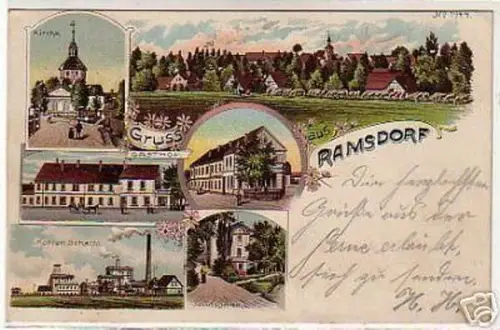 Kirche
Gruss
aus
RAMSDORF
GASTHOF
Kohlen Schacht
Die herzlichsten
Grüße aus der
Ferne erlaubt
sich zu senden
H. H.